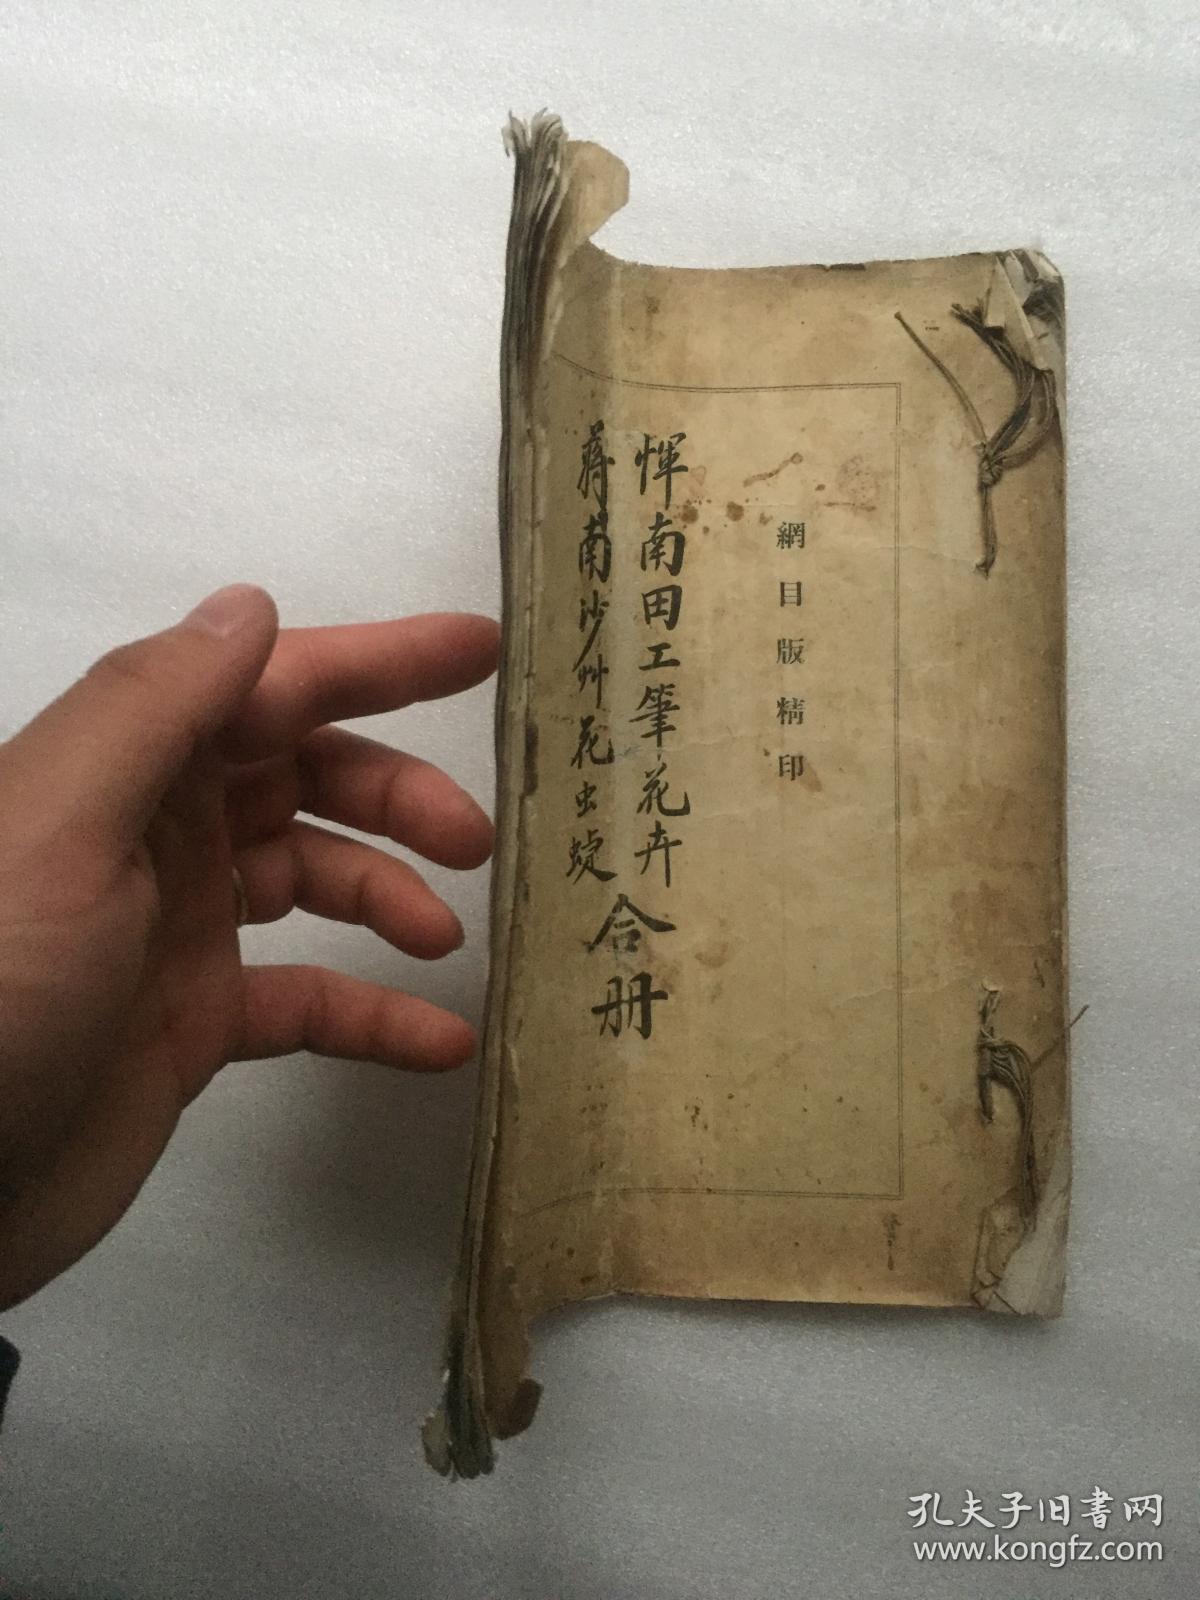 網目版精印
惲南田工筆花卉
蔣南沙艸花虫蝶
合册
孔夫子旧書网
www.kongfz.com